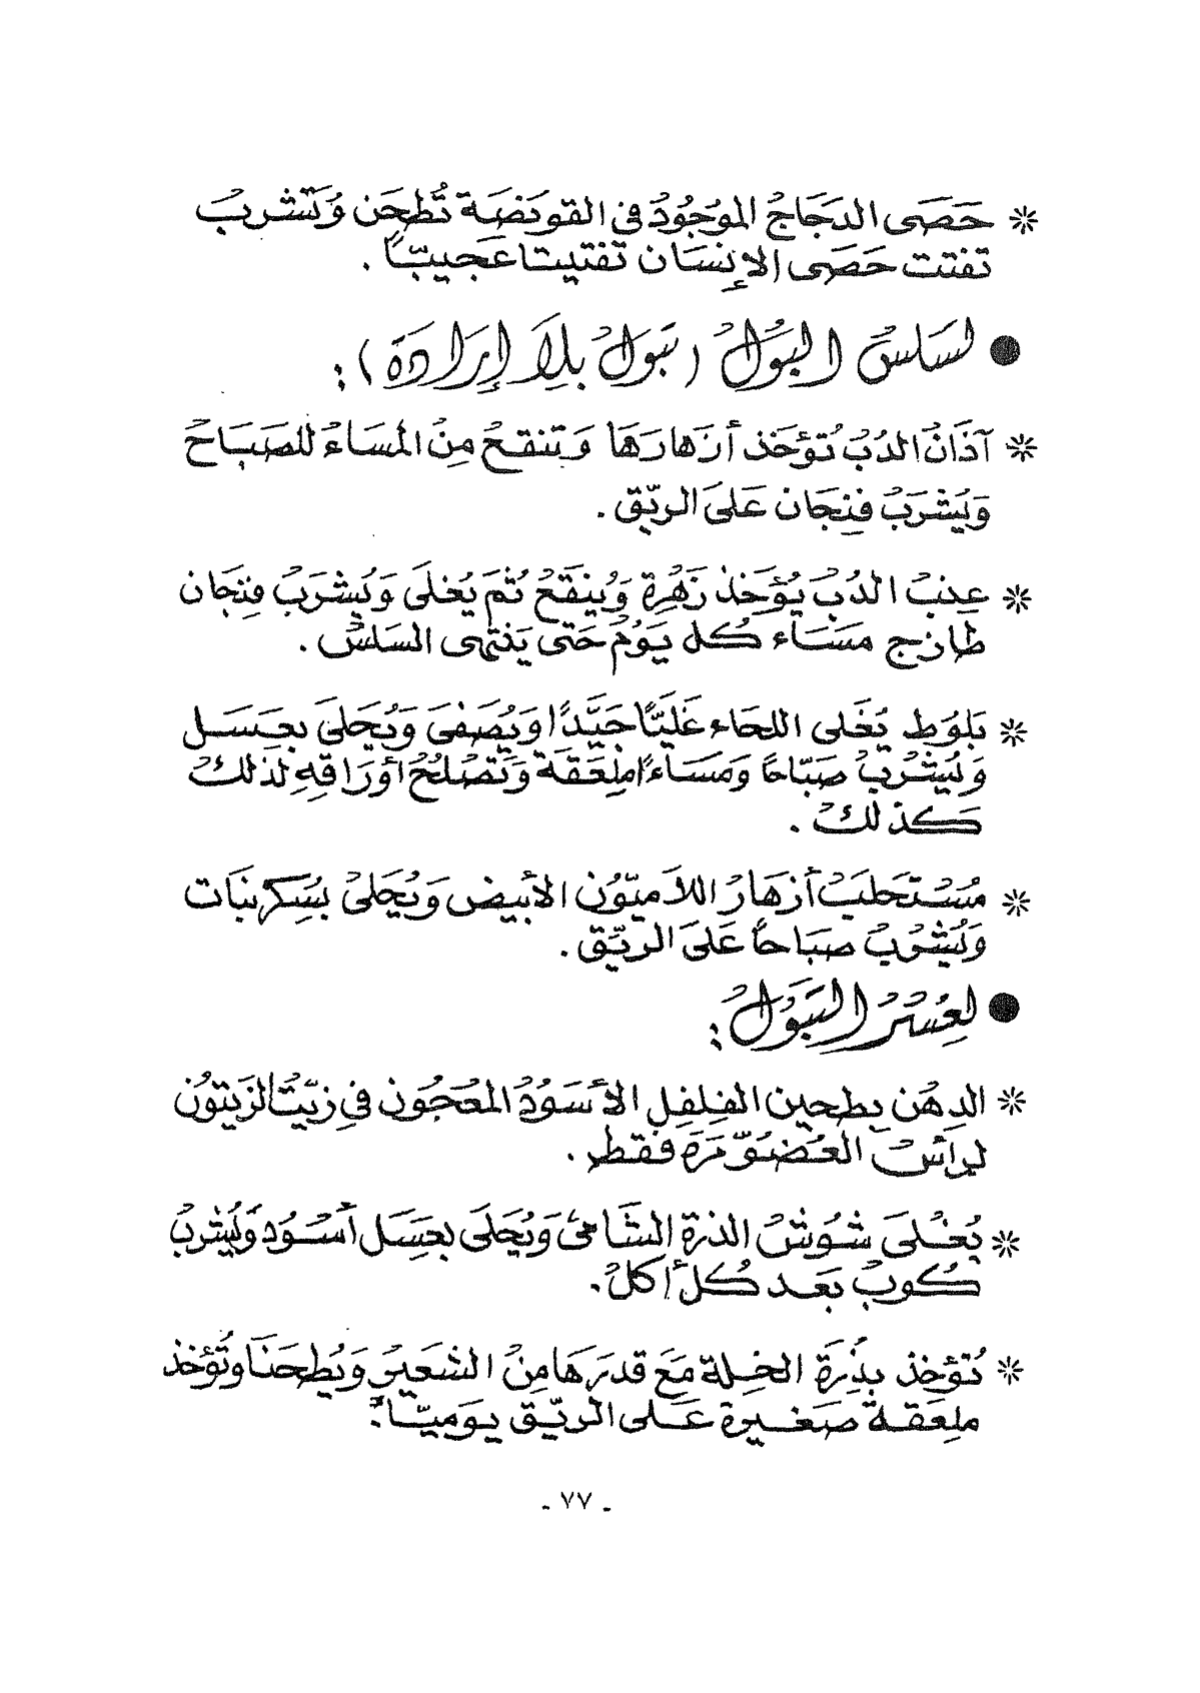 * حَصَى الدجَاجُ الموُجُودُ فى القونضَة تُطحَن وَتشربُ
تفتت حَصَى الإنسَان تفتيتا عَجيبّاً .
● لسَلسُ البَوُلُ ( تبَولُ بلِاَ إرَادَة ) :
* آذَانُ الدُبُ تُؤخَذ أزهَارَهَا وَتنقعُ مِنُ المسَاءُ للصَبَاحُ
وَيَشرَبُ فِنجَان عَلىَ الريّق .
* عِنبُ الدُبُ يُؤخَذ زَهُرة وَيُنقَعُ ثُمَ يُغلَى وَيُشرَبُ فِنجَان
طَازج مسَاء كُل يَوُمُ حَتى يَنتهى السَلسُ .
* بَلوُط يُغَلى اللحَاء غَليَّاً جَيَّداً وَيُصَفىَ وَيُحَلىَ بعَسَل
وَيُشرُبُ صَبّاحاً وَمسَاءً ملِعَقة وَتصُلحُ أوُرَاقهِ لذلكُ
كذلكُ .
* مُسُتحَلبُ أزهَارُ اللاَميّوُن الأبيض وَيُحَلىُ بسُكرنبَات
وَيُشُربُ صبَاحاً عَلىَ الريّق .
● لعِسُرُ التبَوُلُ :
* الدِهُن بِطحين الفلِفلِ الأسَوُدُ المعُجُون فىِ زيّتُ الزيتوُن
لرأسُ العُضوُّ مَرَة فقط .
* يُغُلىَ شوُشُ الذرة الشَامىُ وَيُحَلَى بعَسَل أسُوُد وَيُشربُ
كُوبُ بَعَد كُل أكلُ .
* تُؤخذ بذُرَة الخِلة مَعَ قدرَهَا مِنُ الشعَيرُ وَيُطحَنَا وتُؤخذ
ملِعَقة صَغيرة عَلى الريّق يوَميّاً .
- ٧٧ -